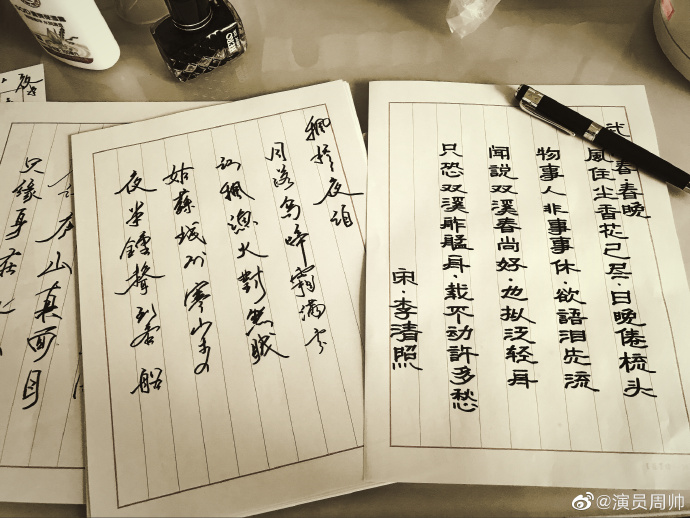 春·春晚
風住尘香花已尽·日晚倦梳头
物事人非事事休·欲語泪先流
闻说双溪春尚好·也拟泛轻舟
只恐双溪舴艋舟·载不动許多愁
宋·李清照
楓橋夜泊
月落烏啼霜滿天
江楓漁火對愁眠
姑蘇城外寒山寺
夜半鐘聲到客船
庐山真面目
只缘身在
@演员周帅